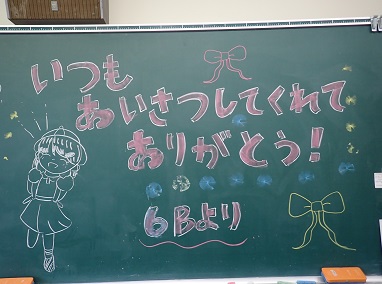 いつも
あいさつしてくれて
ありがとう!
6Bより